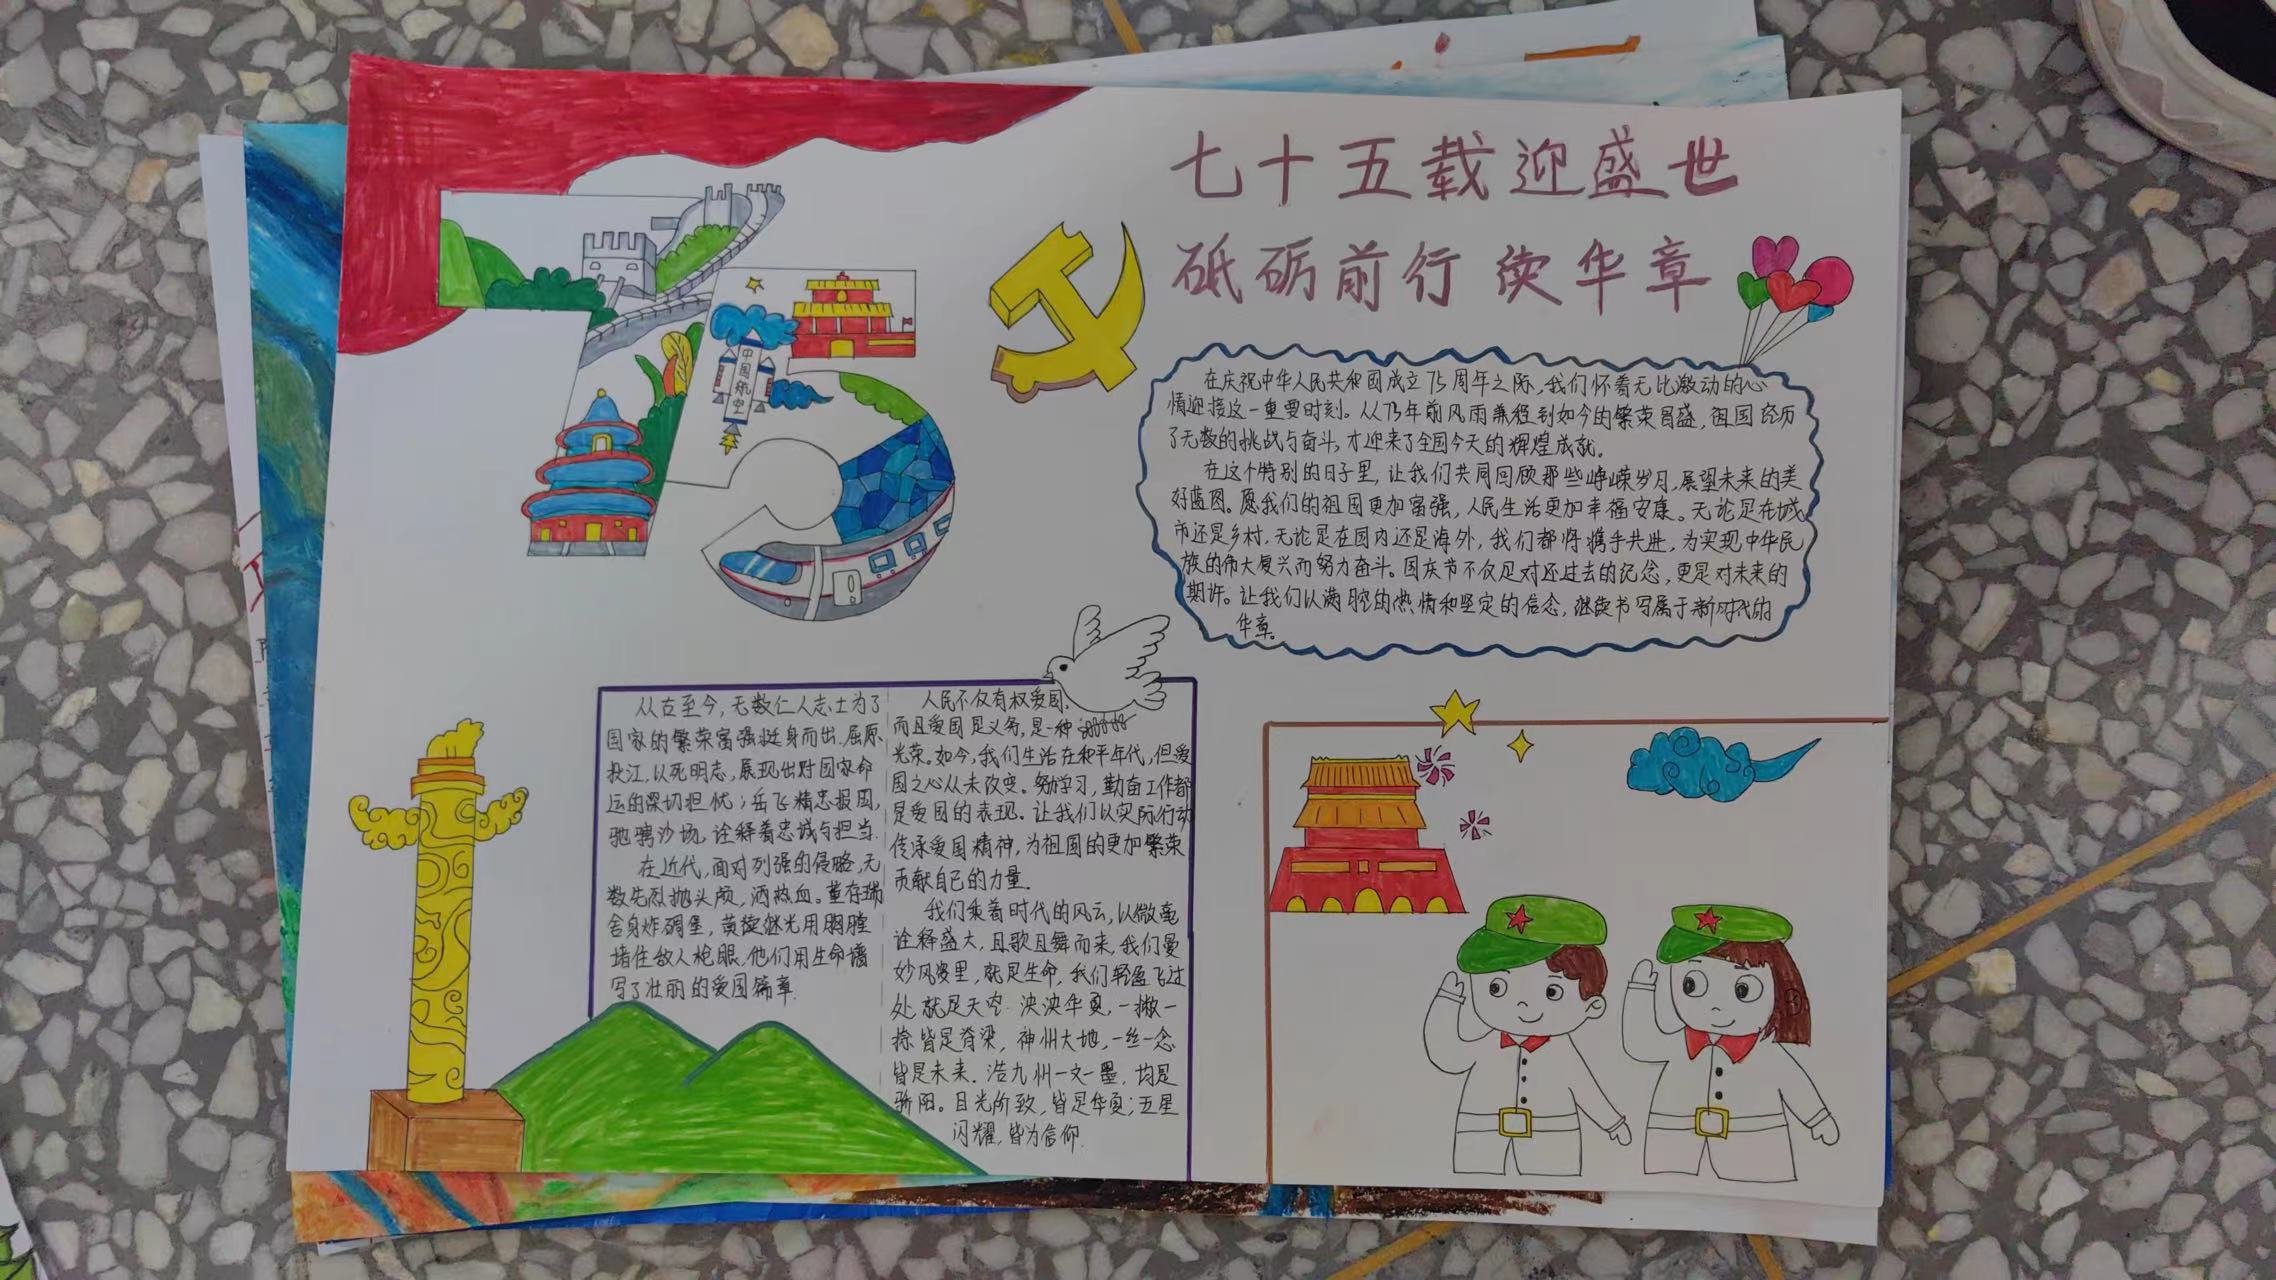 七十五载迎盛世
砥砺前行续华章
中国航空
在庆祝中华人民共和国成立75周年之际,我们怀着无比激动的心
情迎接这一重要时刻。从75年前风雨兼程到如今的繁荣昌盛,祖国经历
了无数的挑战与奋斗,才迎来了全国今天的辉煌成就。
在这个特别的日子里,让我们共同回顾那些峥嵘岁月,展望未来的美
好蓝图。愿我们的祖国更加富强,人民生活更加幸福安康。无论是在城
市还是乡村,无论是在国内还是海外,我们都将携手共进,为实现中华民
族的伟大复兴而努力奋斗。国庆节不仅是对还过去的纪念,更是对未来的
期许。让我们以满腔的热情和坚定的信念,继续书写属于新时代的
华章。
从古至今,无数仁人志士为了
国家的繁荣富强挺身而出.屈原
投江,以死明志,展现出对国家命
运的深切担忧;岳飞精忠报国,
驰骋沙场,诠释着忠诚与担当.
在近代,面对列强的侵略,无
数先烈抛头颅,洒热血。董存瑞
舍身炸碉堡,黄继光用胸膛
堵住敌人枪眼.他们用生命谱
写了壮丽的爱国篇章.
人民不仅有权爱国,
而且爱国是义务,是一种
光荣。如今,我们生活在和平年代,但爱
国之心从未改变。努学习,勤奋工作都
是爱国的表现。让我们以实际行动
传承爱国精神,为祖国的更加繁荣
贡献自己的力量.
我们乘着时代的风云,以微毫
诠释盛大,且歌且舞而来,我们曼
妙风姿里,就是生命,我们轻盈飞过
处就是天空.泱泱华夏,一撇一
捺皆是脊梁,神州大地,一丝一念
皆是未来.浩九州一文一墨,均是
骄阳。目光所致,皆是华夏;五星
闪耀,皆为信仰.